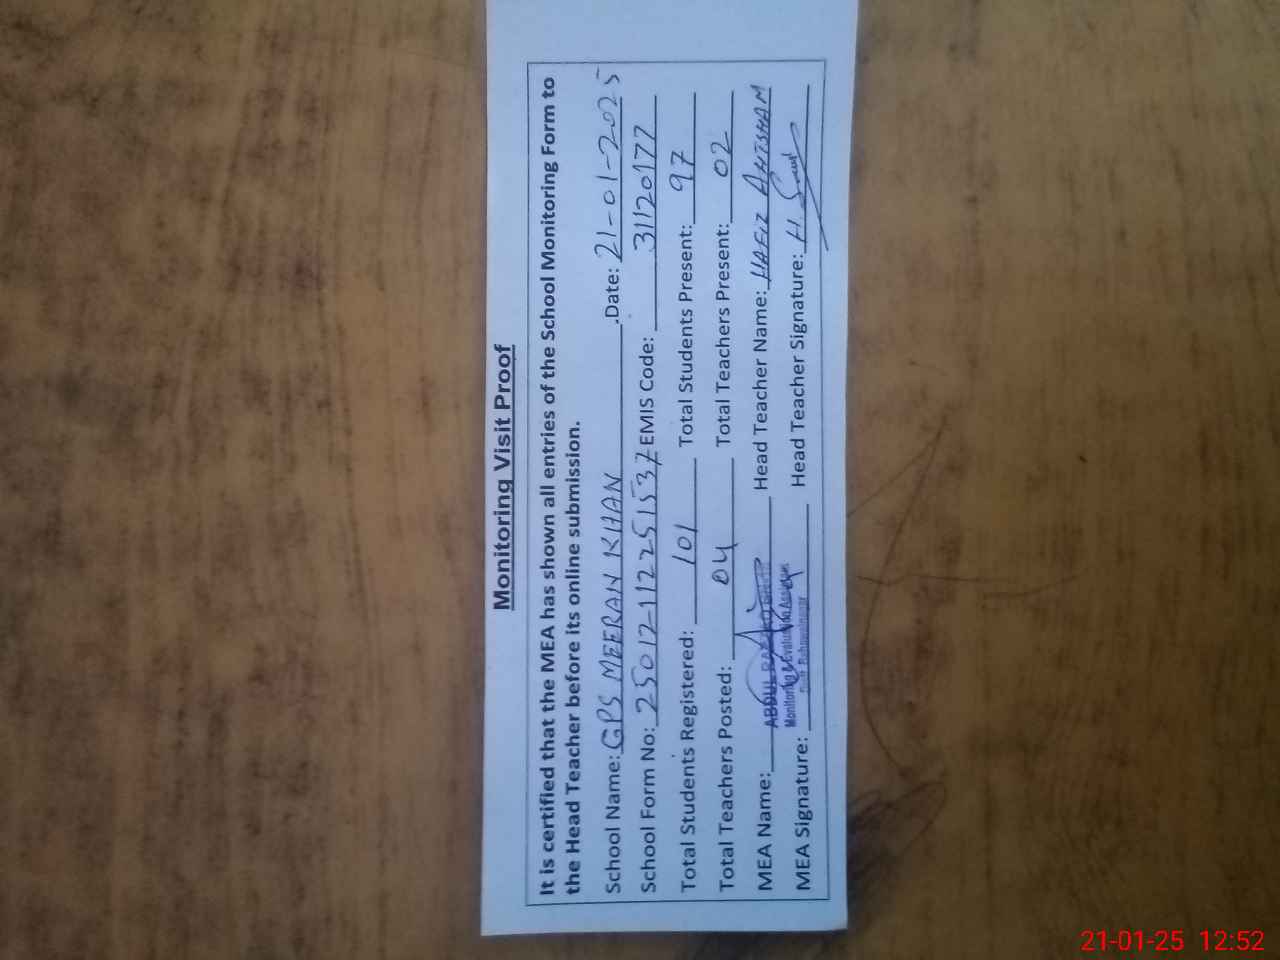 Monitoring Visit Proof
It is certified that the MEA has shown all entries of the School Monitoring Form to
the Head Teacher before its online submission.
School Name: GPS MEERAN KHAN .Date: 21-01-2025
School Form No: 25012-112251537 EMIS Code: 31120177
Total Students Registered: 101 Total Students Present: 97
Total Teachers Posted: 04 Total Teachers Present: 02
MEA Name: ABDUL Head Teacher Name: HAFIZ AHTSHAM
Monitoring & Evaluation Assistant
MEA Signature: Bahawalnagar Head Teacher Signature: H.
21-01-25 12:52